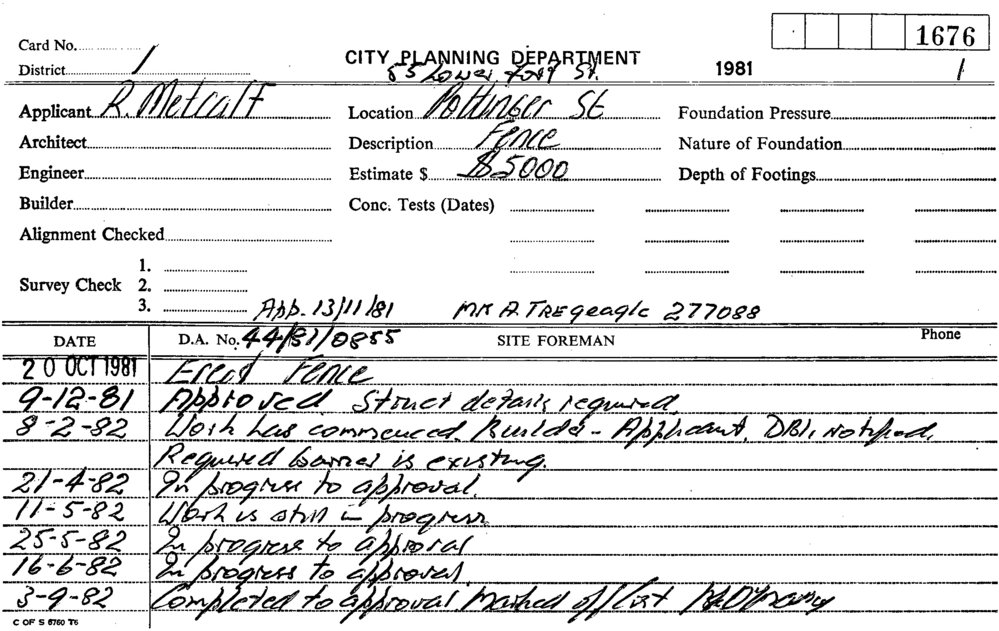 1676
Card No.
CITY PLANNING DEPARTMENT
District 1
55 Lower Fort St. 1981 1
Applicant R. Metcalf Location Pottinger St Foundation Pressure
Architect Description Fence Nature of Foundation
Engineer Estimate $ $5000 Depth of Footings
Builder Conc. Tests (Dates)
Alignment Checked
1.
Survey Check 2.
3. App. 13/11/81 MR A. TREgeagle 277088
DATE D.A. No. 44/81/0855 SITE FOREMAN Phone
20 OCT 1981 Erect Fence
9-12-81 Approved Struct details required.
8-2-82 Work has commenced. Builder - Applicant. DBI, notified.
Required barrier is existing.
21-4-82 In progress to approval.
11-5-82 Work is still in progress
25-5-82 In progress to approval
16-6-82 In progress to approval.
3-9-82 Completed to approval Marked off list
C OF S 6760 T6